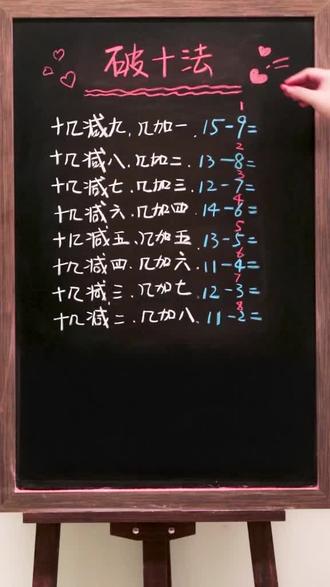 破十法
十几减九,几加一.15-9=
1
十几减八,几加二.13-8=
2
十几减七,几加三.12-7=
3
十几减六,几加四.14-6=
4
十几减五,几加五.13-5=
5
十几减四.几加六.11-4=
6
十几减三.几加七.12-3=
7
十几减二.几加八.11-2=
8